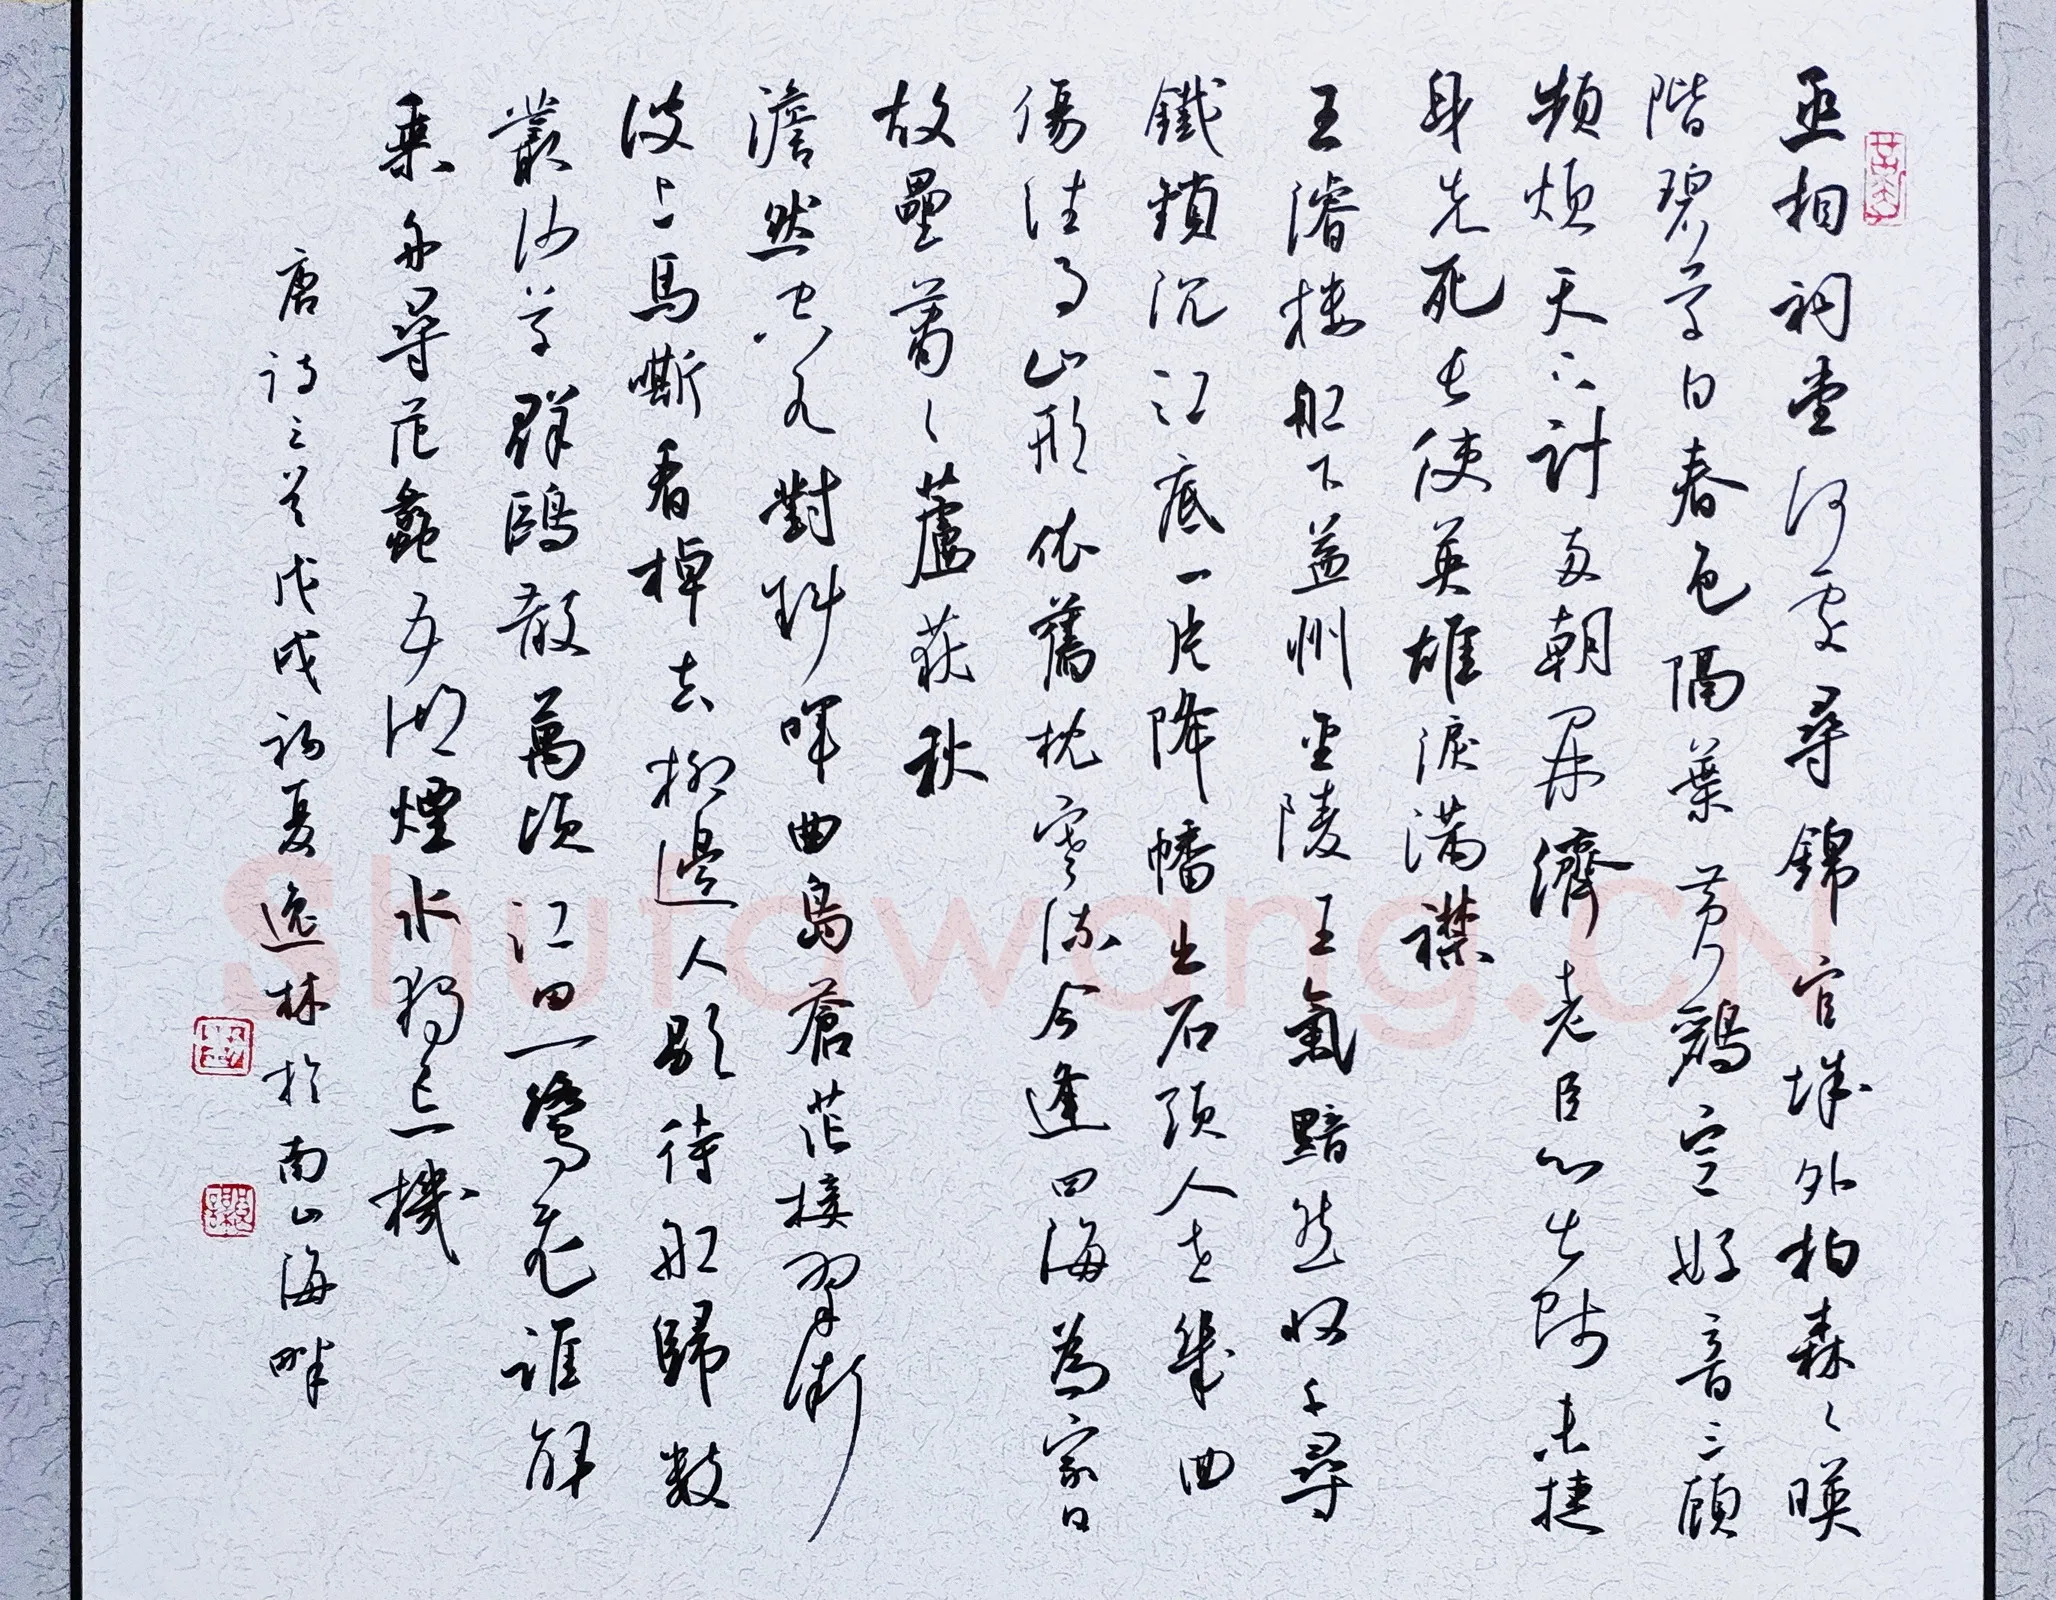 丞相祠堂何處尋錦官城外柏森々暎
階碧草自春色隔葉黄鸝空好音三顧
頻煩天下計兩朝開濟老臣心出師未捷
身先死長使英雄淚滿襟
王濬楼船下益州金陵王氣黯然收千尋
鐵鎖沉江底一片降幡出石頭人世幾回
傷往事山形依舊枕寒流今逢四海為家日
故壘蕭々蘆荻秋
澹然空水對斜暉曲島蒼茫接翠微
波上馬嘶看棹去柳邊人歇待船歸數
叢沙草群鷗散萬頃江田一鷺飛誰解
乘舟尋范蠡五湖煙水獨忘機
唐詩三首戊戌初夏逸林於南山海畔
Shufawang.CN